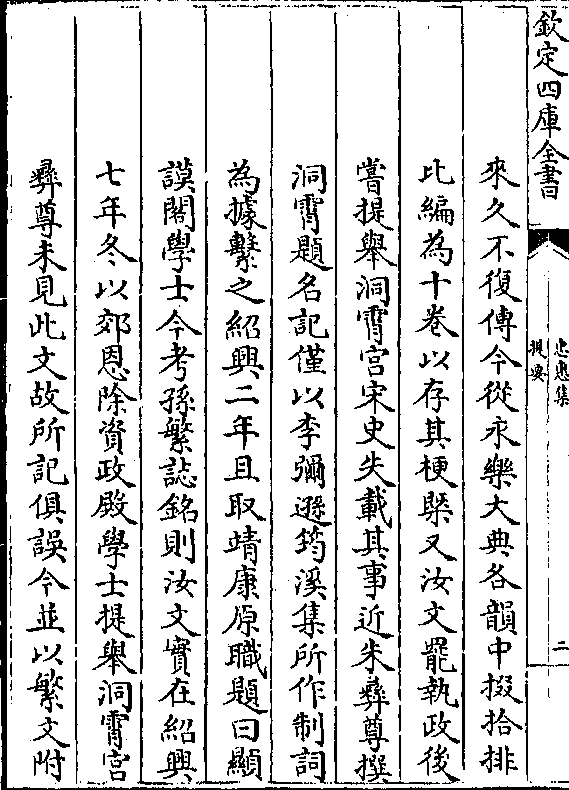 欽定四庫全書
忠惠集
提要
二
來久不復傳今從永樂大典各韻中掇拾排
比編為十卷以存其梗槩又汝文罷執政後
嘗提舉洞霄宫宋史失載其事近朱彝尊撰
洞霄題名記僅以李彌遜筠溪集所作制詞
為據繫之紹興二年且取靖康原職題曰顯
謨閣學士今考孫繁誌銘則汝文實在紹興
七年冬以郊恩除資政殿學士提舉洞霄宫
彝尊未見此文故所記俱誤今並以繁文附